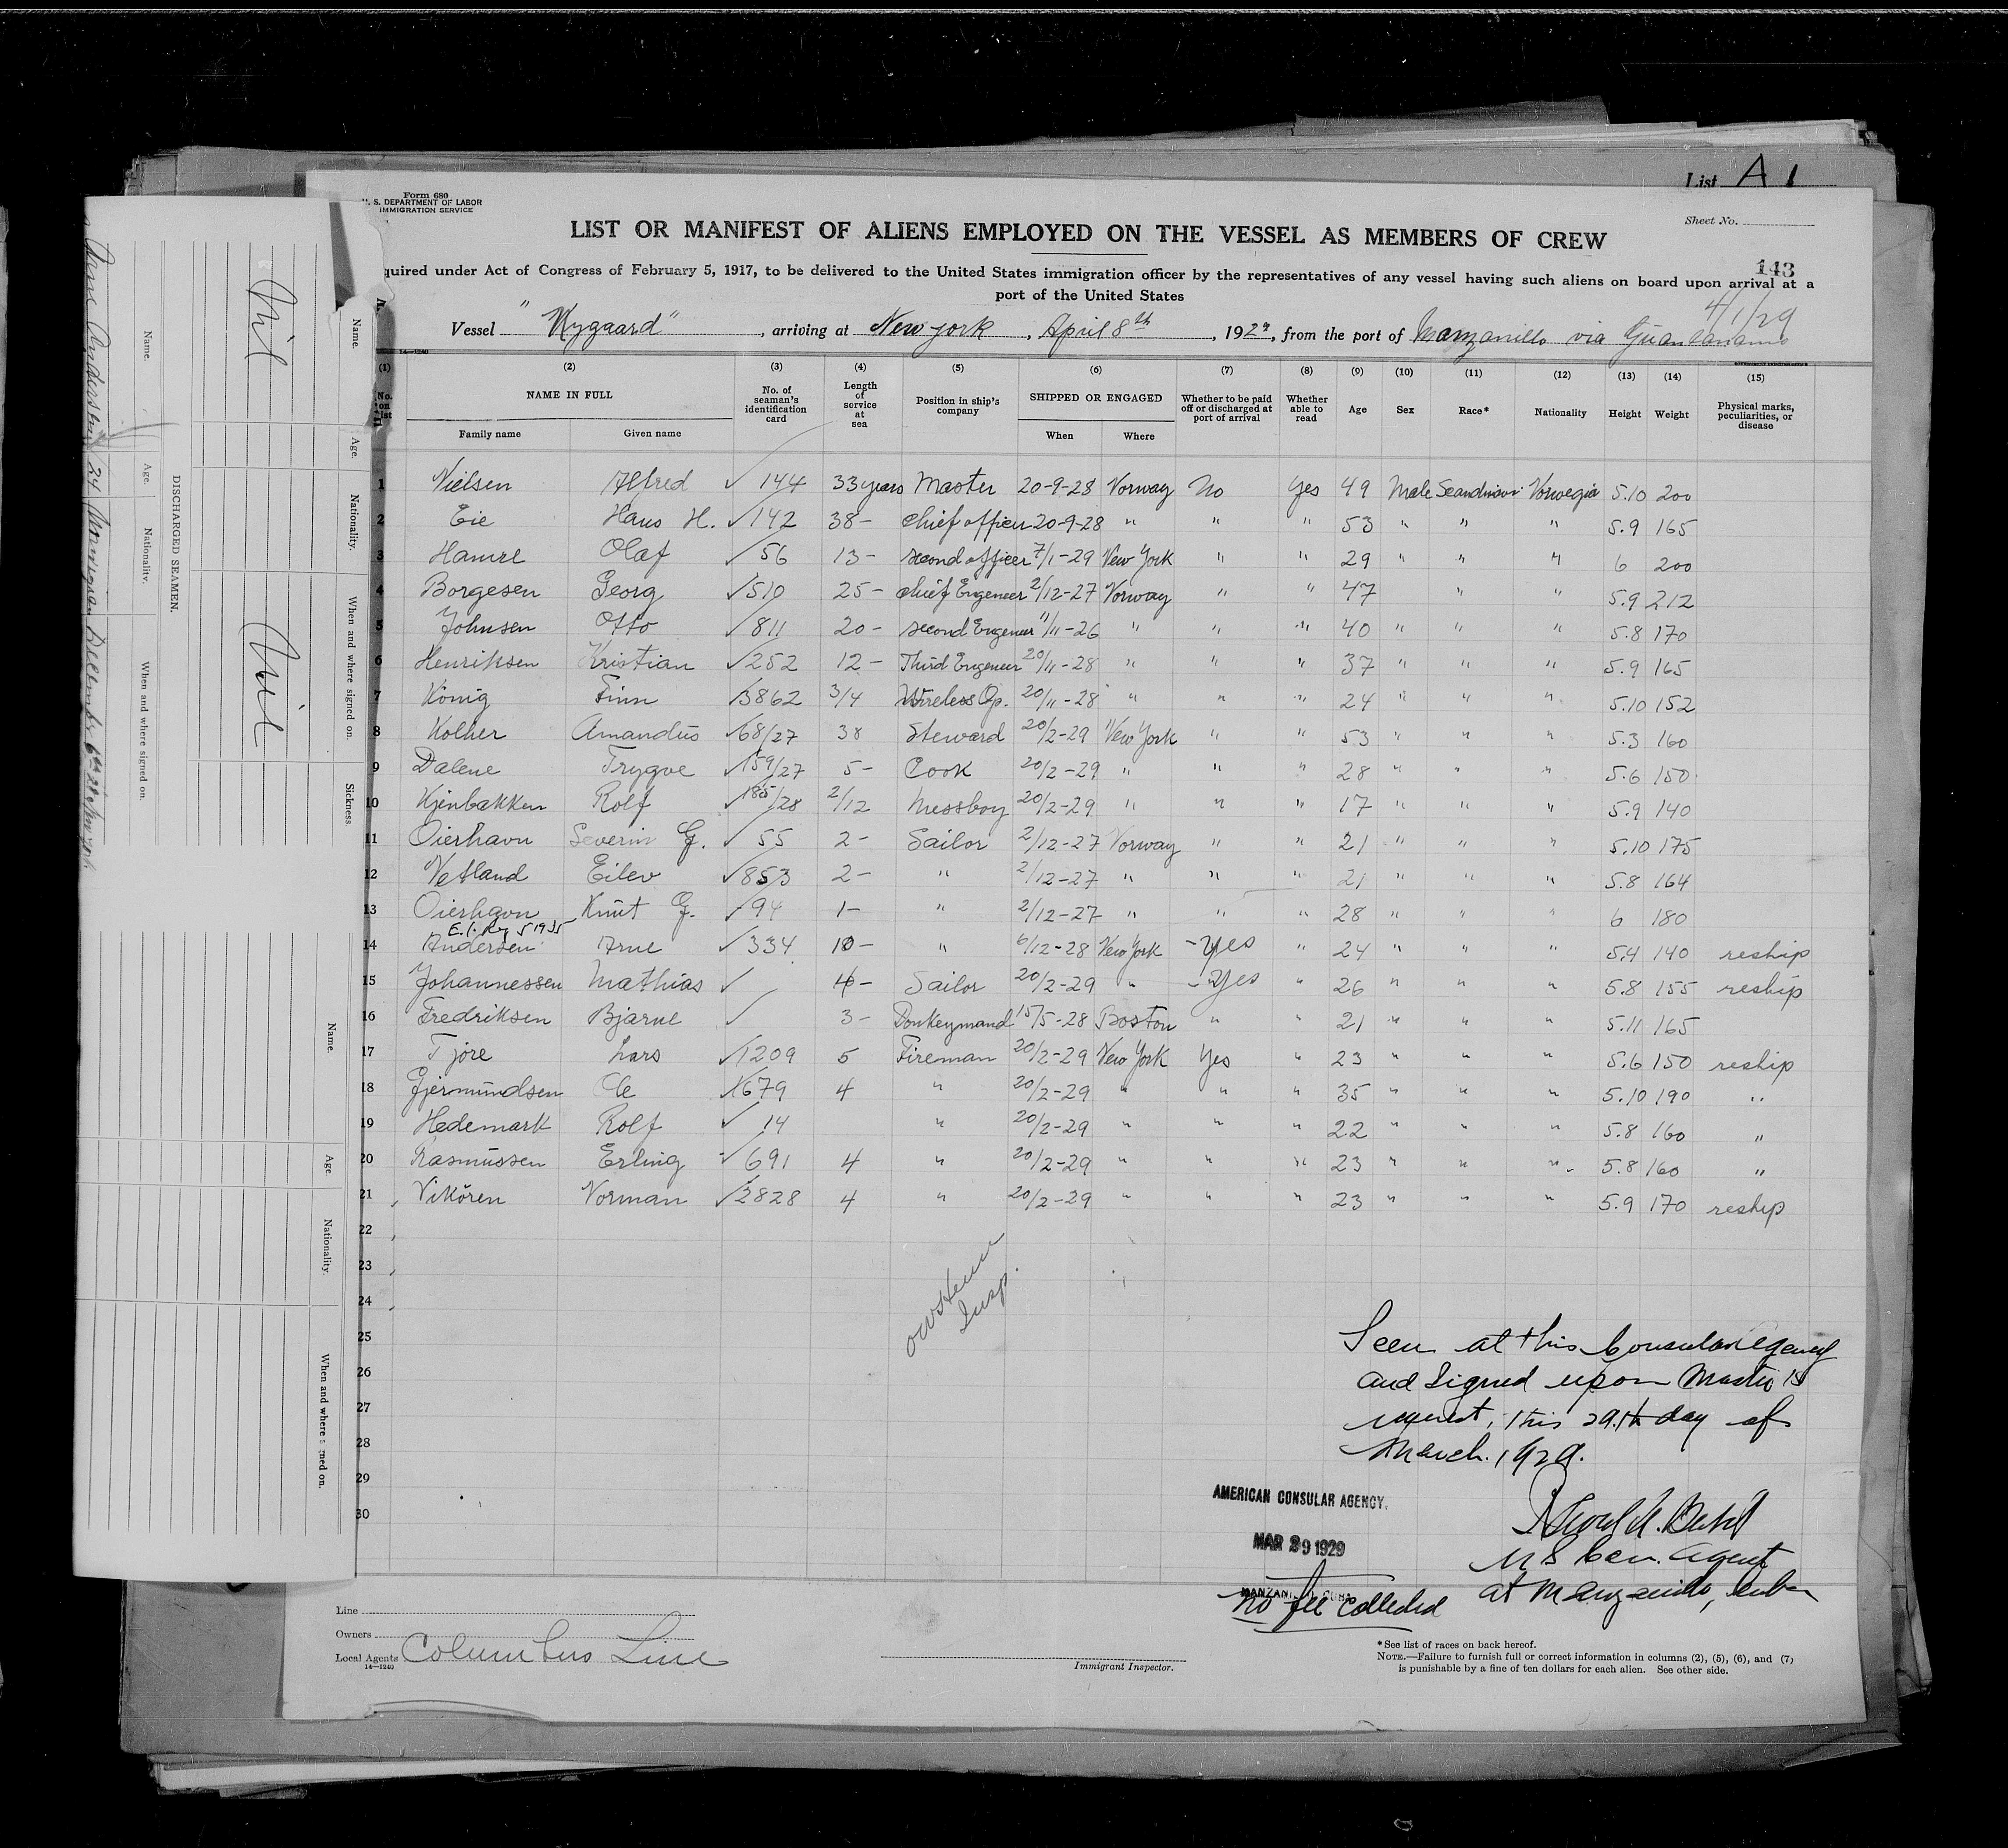 List A 1
Form 680
U. S. DEPARTMENT OF LABOR
IMMIGRATION SERVICE
Sheet No.
LIST OR MANIFEST OF ALIENS EMPLOYED ON THE VESSEL AS MEMBERS OF CREW
143
quired under Act of Congress of February 5, 1917, to be delivered to the United States immigration officer by the representatives of any vessel having such aliens on board upon arrival at a
port of the United States
4/1/29
Vessel "Nygaard", arriving at New york, April 8th, 1929, from the port of Manzanillo via Guantanamo
14—1240
(1) (2) (3) (4) (5) (6) (7) (8) (9) (10) (11) (12) (13) (14) (15)
No. on list NAME IN FULL No. of seaman's identification card Length of service at sea Position in ship's company SHIPPED OR ENGAGED Whether to be paid off or discharged at port of arrival Whether able to read Age Sex Race* Nationality Height Weight Physical marks, peculiarities, or disease
Family name Given name When Where
1 Nielsen Alfred ✓ 144 33 years Master 20-9-28 Norway No Yes 49 Male Scandinavi Norwegia 5.10 200
2 Eie Hans H. ✓ 142 38 - Chief officer 20-9-28 " " " 53 " " " 5.9 165
3 Hamre Olaf ✓ 56 13 - second officer 7/1-29 New York " " 29 " " " 6 200
4 Borgesen Georg ✓ 510 25 - chief Engeneer 2/12-27 Norway " " 47 " " 5.9 212
5 Johnsen Otto ✓ 811 20 - second Engeneer 11/11-26 " " " 40 " " " 5.8 170
6 Henriksen Kristian ✓ 252 12 - Third Engeneer 20/11-28 " " " 37 " " " 5.9 165
7 König Finn ✓ 3862 3/4 Wireless Op. 20/11-28 " " " 24 " " " 5.10 152
8 Kolher Amandus ✓ 68/27 38 Steward 20/2-29 New York " " 53 " " " 5.3 160
9 Dalene Trygve ✓ 159/27 5 - Cook 20/2-29 " " " 28 " " " 5.6 150
10 Kjenbakken Rolf ✓ 185/28 2/12 Messboy 20/2-29 " " " 17 " " " 5.9 140
11 Oierhavn Severin G. ✓ 55 2 - Sailor 2/12-27 Norway " " 21 " " " 5.10 175
12 Vetland Eilev ✓ 853 2 - " 2/12-27 " " " 21 " " " 5.8 164
13 Oierhavn Knut G. ✓ 94 1 - " 2/12-27 " " " 28 " " " 6 180
14 Andersen Arne ✓ 334 10 - " 6/12-28 New York - Yes " 24 " " " 5.4 140 reship
15 Johannessen Mathias ✓ 4 - Sailor 20/2-29 " - Yes " 26 " " " 5.8 155 reship
16 Fredriksen Bjarne ✓ 3 - Donkeymand 15/5-28 Boston " " 21 " " " 5.11 165
17 Tjore Lars ✓ 1209 5 Fireman 20/2-29 New York Yes " 23 " " " 5.6 150 reship
18 Gjermundsen Ole ✓ 1679 4 " 20/2-29 " " " 35 " " " 5.10 190 "
19 Hedemark Rolf ✓ 14 " 20/2-29 " " " 22 " " " 5.8 160 "
20 Rasmussen Erling ✓ 691 4 " 20/2-29 " " " 23 " " " 5.8 160 "
21 Vikören Norman ✓ 2828 4 " 20/2-29 " " " 23 " " " 5.9 170 reship
22
23
24
25
26
27
28
29
30
Insp.
Seen at this Consular Agency
and Signed upon Master's
request, this 29.th day of
March. 1929.
U S Con. Agent
at Manzanillo, Cuba
AMERICAN CONSULAR AGENCY.
MAR 29 1929
MANZANILLO, CUBA
No fee collected
Line
Owners
Local Agents Columbus Line
14—1240
Immigrant Inspector.
*See list of races on back hereof.
NOTE.—Failure to furnish full or correct information in columns (2), (5), (6), and (7)
is punishable by a fine of ten dollars for each alien. See other side.
DISCHARGED SEAMEN.
Name. Age. Nationality. When and where signed on.
Arne Andersen 24 Norwegian December 6th 28 New york
Name. Age. Nationality. When and where signed on. Sickness.
Nil Nil
Name. Age. Nationality. When and where signed on.